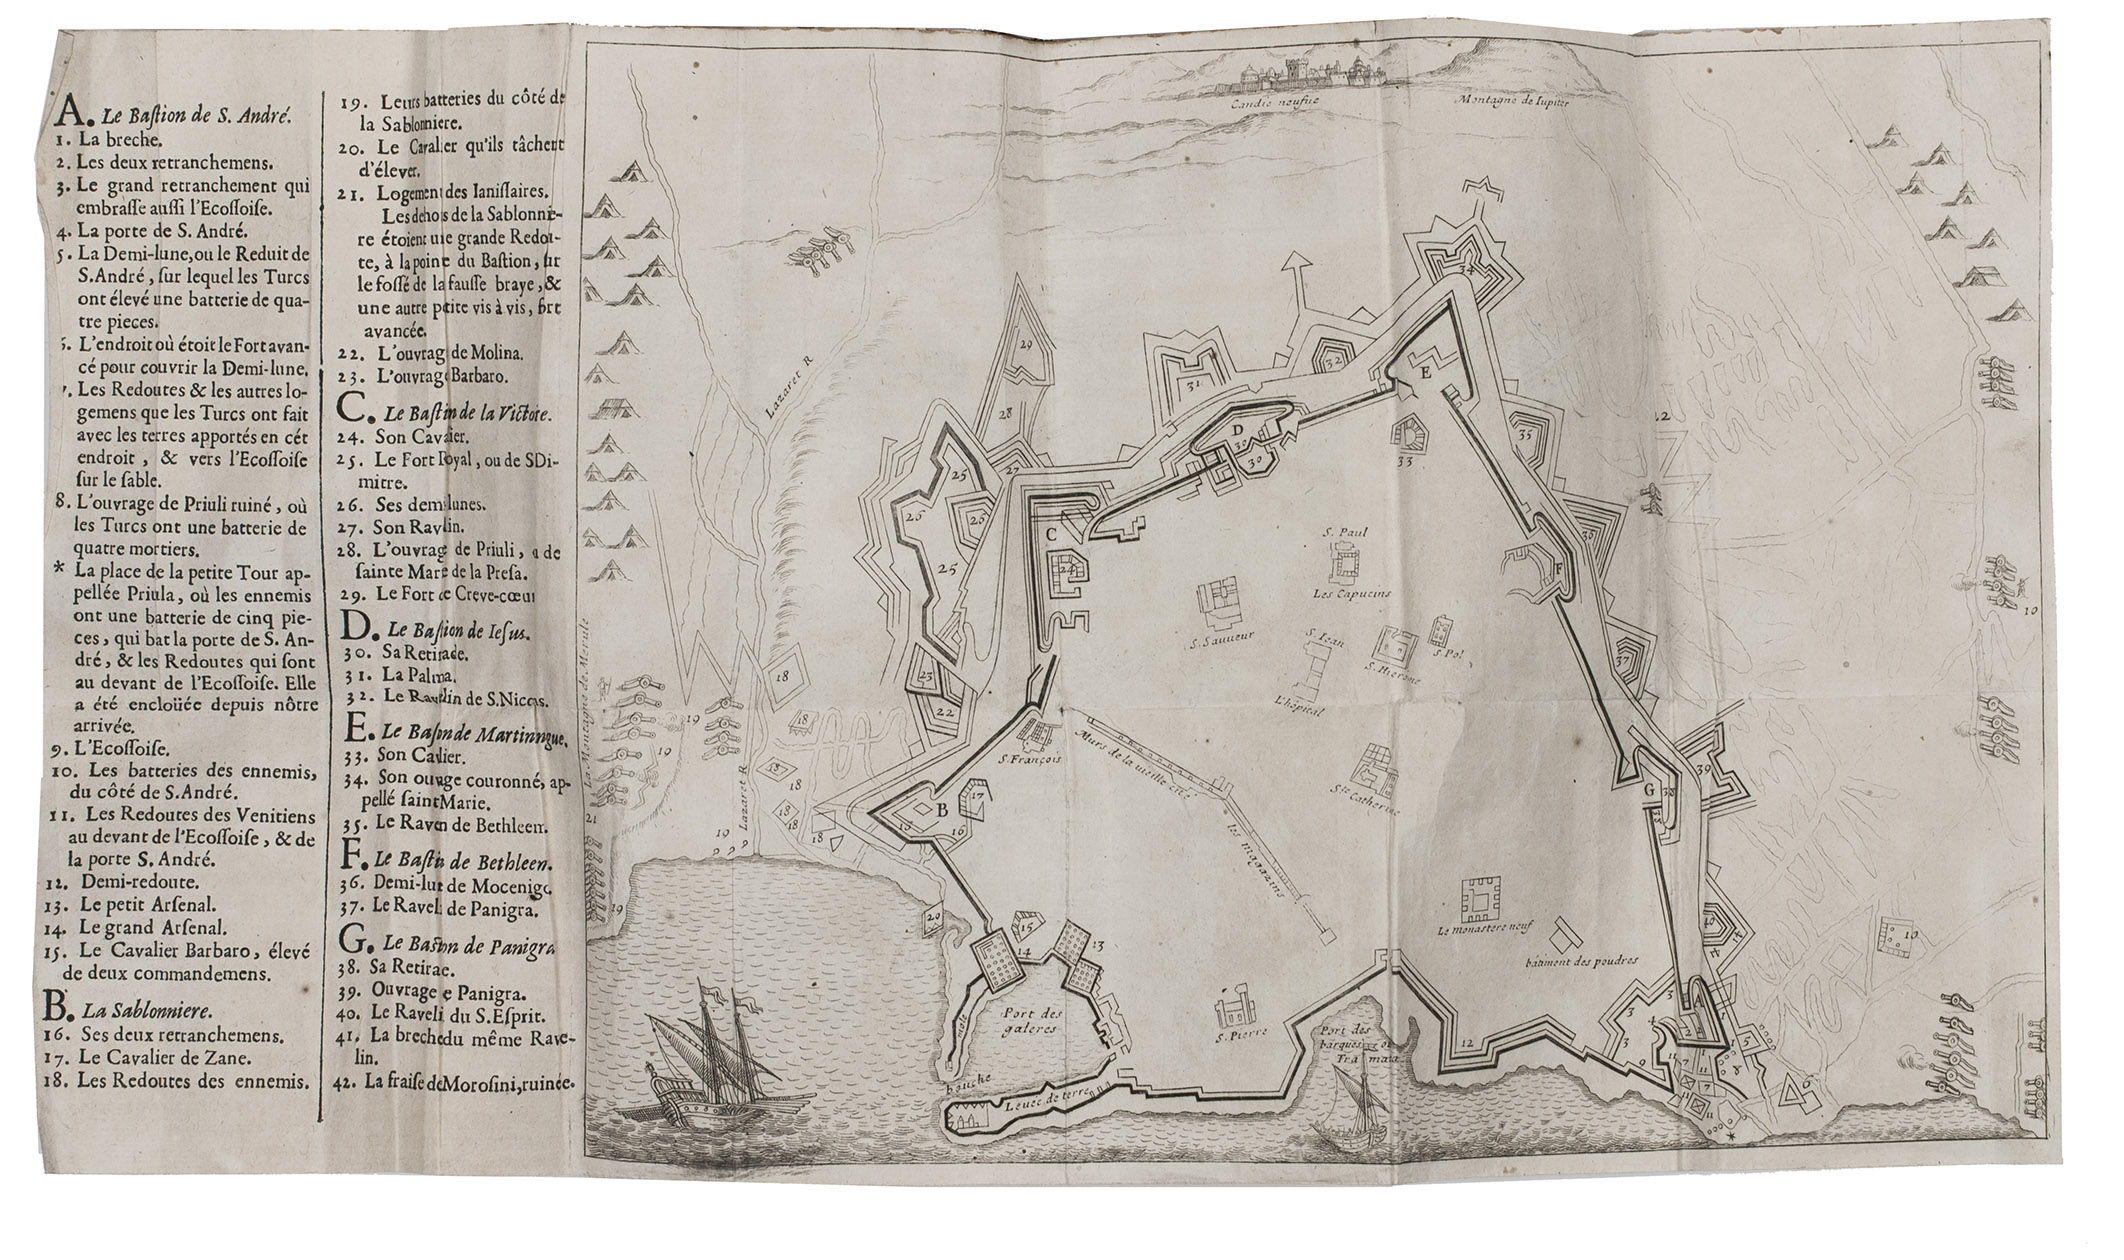 A. Le Baſtion de S. André.
1. La breche.
2. Les deux retranchemens.
3. Le grand retranchement qui
embraſſe auſſi l'Ecoſſoiſe.
4. La porte de S. André.
5. La Demi-lune, ou le Reduit de
S. André, ſur lequel les Turcs
ont élevé une batterie de qua-
tre pieces.
L'endroit où étoit le Fort avan-
cé pour couvrir la Demi-lune.
Les Redoutes & les autres lo-
gemens que les Turcs ont fait
avec les terres apportés en cét
endroit, & vers l'Ecoſſoiſe
ſur le ſable.
8. L'ouvrage de Priuli ruiné, où
les Turcs ont une batterie de
quatre mortiers.
* La place de la petite Tour ap-
pellée Priula, où les ennemis
ont une batterie de cinq pie-
ces, qui bat la porte de S. An-
dré, & les Redoutes qui ſont
au devant de l'Ecoſſoiſe. Elle
a été encloüée depuis nôtre
arrivée.
9. L'Ecoſſoiſe.
10. Les batteries des ennemis,
du côté de S. André.
11. Les Redoutes des Venitiens
au devant de l'Ecoſſoiſe, & de
la porte S. André.
12. Demi-redoute.
13. Le petit Arſenal.
14. Le grand Arſenal.
15. Le Cavalier Barbaro, élevé
de deux commandemens.
B. La Sablonniere.
16. Ses deux retranchemens.
17. Le Cavalier de Zane.
18. Les Redoutes des ennemis.
19. Leurs batteries du côté de
la Sablonniere.
20. Le Cavalier qu'ils tâchent
d'élever.
21. Logement des Ianiſſaires.
Les dehors de la Sablonnie-
re étoient une grande Redou-
te, à la pointe du Baſtion, ſur
le foſſé de la fauſſe braye, &
une autre petite vis à vis, fort
avancée.
22. L'ouvrage de Molina.
23. L'ouvrage Barbaro.
C. Le Baſtin de la Victoie.
24. Son Cavalier.
25. Le Fort Royal, ou de S Di-
mitre.
26. Ses demi lunes.
27. Son Ravlin.
28. L'ouvrag de Priuli, u de
ſainte Mare de la Preſa.
29. Le Fort de Creve-cœur
D. Le Baſtion de Ieſus.
30. Sa Retirade.
31. La Palma.
32. Le Ravelin de S. Nicoas.
E. Le Baſton de Martinngue.
33. Son Cavalier.
34. Son ouvrage couronné, ap-
pellé ſaint Marie.
35. Le Raven de Bethleem.
F. Le Baſtin de Bethleem.
36. Demi-lune de Mocenigo.
37. Le Ravelin de Panigra.
G. Le Baſtion de Panigra
38. Sa Retirae.
39. Ouvrage e Panigra.
40. Le Raveli du S. Eſprit.
41. La breche du même Rave-
lin.
42. La fraiſe de Moroſini, ruinée.
Candie neufue
Montagne de Iupiter
Lazaret R
La Montagne de Merule
Lazaret R
S. Paul
Les Capucins
S. Sauueur
S. Iean
L'hopital
S. Hierome
S. Pol
S. François
Murs de la vieille cité
les magazins
Ste Catherine
Le monastere neuf
bâtiment des poudres
S. Pierre
Port des
galeres
mole
bouche
Leuée de terre
Port des
barques
34
29
31
32
28
E
35
D
30
30
33
27
25
26
26
C
24
25
36
F
37
23
22
18
18
19
19
18
18
18
18
19
21
19
B
15
16
17
20
15
14
13
G
38
39
40
41
42
10
10
A
12
3
3
3
4
2
1
5
9
11
7
11
7
11
8
6
*